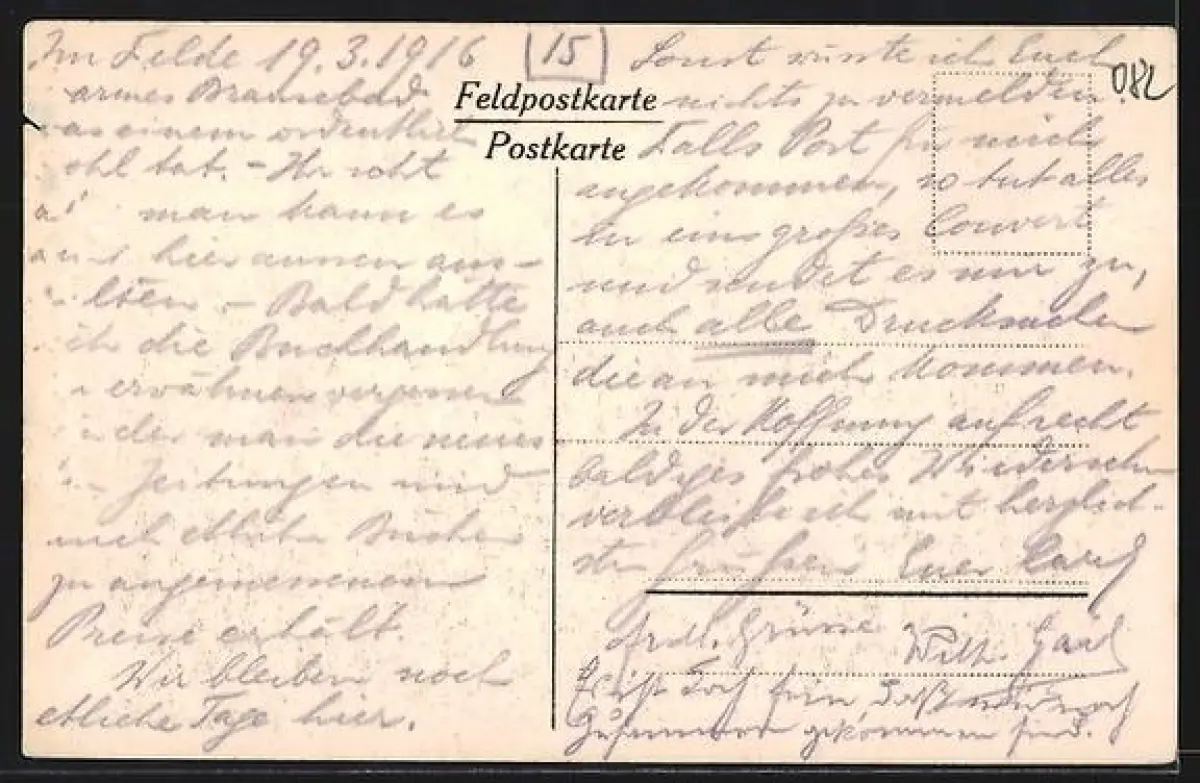 Im Felde 19.3.1916
15
armes Brausebad
einem ordentlich
ohl tat. - Ihr seht
man kann es
hier aussen aus-
lten. - Bald hätte
ich die Buchhandlung
erwähnen vergessen
in der man die neues
Zeitungen und
auch etliche Bücher
zu angemessenem
Preise erhält.
Wir bleiben noch
etliche Tage hier.
Feldpostkarte
Postkarte
082
Sonst wüsste ich Euch
nichts zu vermelden.
Falls Post für mich
angekommen, so tut alles
in eins großes Couvert
und sendet es mir zu,
auch alle Drucksachen
die an mich kommen.
In der Hoffnung auf recht
baldiges frohes Wiedersehn
verbleibe ich mit herzlich-
sten Grüßen Euer Karl
frdl. Grüsse Wilh.
Es ist doch fein, daß wir noch
zusammen gekommen sind.